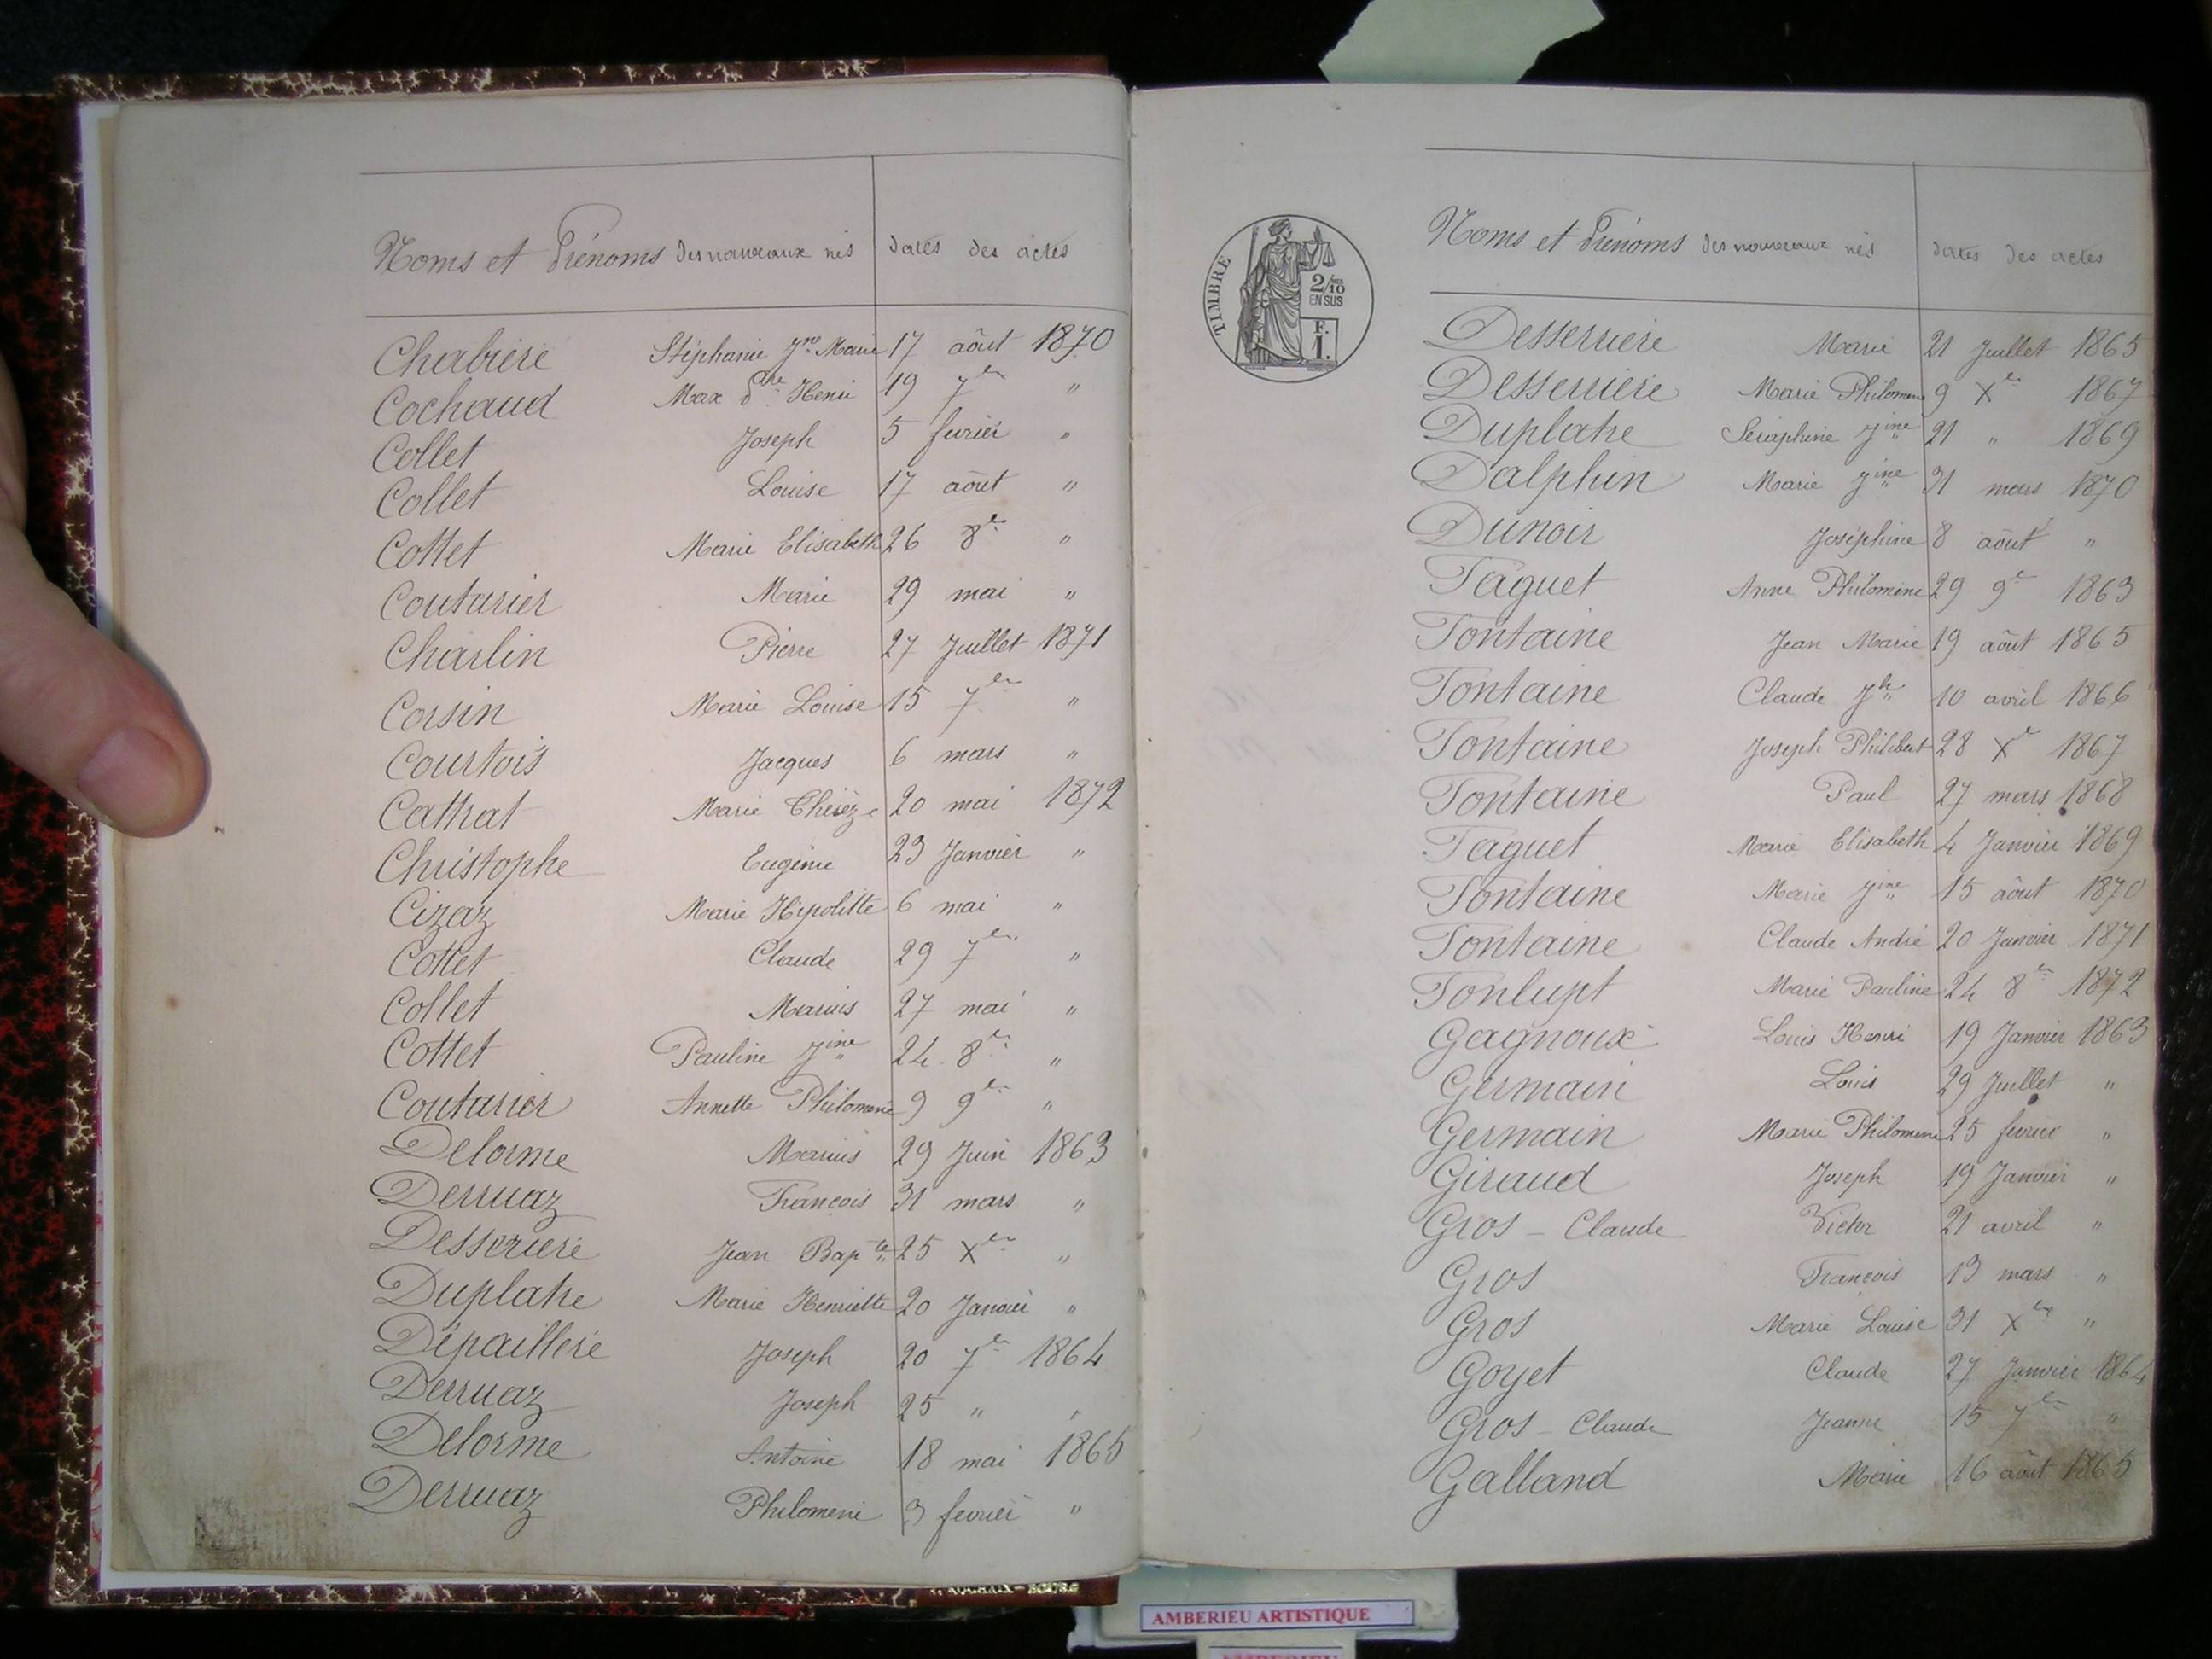 Noms et Prénoms des nouveaux nés dates des actes
Chabiere Stéphanie Jne Marie 17 aôut 1870
Cochaud Max dre Henri 19 7bre "
Collet Joseph 5 fevrier "
Collet Louise 17 aôut "
Cottet Marie Elisabeth 26 8e "
Couturier Marie 29 mai "
Charlin Pierre 27 Juillet 1871
Corsin Marie Louise 15 7bre "
Courtois Jacques 6 mars "
Cattrat Marie Thérèze 20 mai 1872
Christophe Eugénie 23 Janvier "
Cizaz Marie Hipolitte 6 mai "
Cottet Claude 29 7bre "
Collet Marius 27 mai "
Cottet Pauline Jine 24 8bre "
Couturier Annette Philomene 9 9bre "
Delorme Marius 29 Juin 1863
Derruaz François 31 mars "
Desseriere Jean Bapte 25 Xbre "
Duplatre Marie Henriette 20 Janvier "
Dépaillere Joseph 20 7e 1864
Derruaz Joseph 25 " "
Delorme Antoine 18 mai 1865
Derruaz Philomene 3 fevrier "
TIMBRE
2/10
EN SUS
F.
1.
Noms et Prénoms des nouveaux nés dates des actes
Desserriere Marie 21 Juillet 1865
Desserriere Marie Philomene 9 Xe 1867
Duplatre Séraphine Jine 21 " 1869
Dalphin Marie Jine 31 mars 1870
Dunoir Joséphine 8 aôut "
Faguet Anne Philomène 29 9e 1863
Fontaine Jean Marie 19 aôut 1865
Fontaine Claude Jh 10 avril 1866
Fontaine Joseph Philibert 28 Xe 1867
Fontaine Paul 27 mars 1868
Faguet Marie Elisabeth 4 Janvier 1869
Fontaine Marie Jine 15 aôut 1870
Fontaine Claude André 20 Janvier 1871
Fonlupt Marie Pauline 24 8e 1872
Gagnoux Louis Henri 19 Janvier 1863
Germain Louis 29 Juillet "
Germain Marie Philomene 25 fevrier "
Giraud Joseph 19 Janvier "
Gros - Claude Victor 21 avril "
Gros François 13 mars "
Gros Marie Louise 31 Xbre "
Goyet Claude 27 Janvier 1864
Gros - Claude Jeanne 15 7bre "
Galland Marie 16 aôut 1865
AMBERIEU ARTISTIQUE